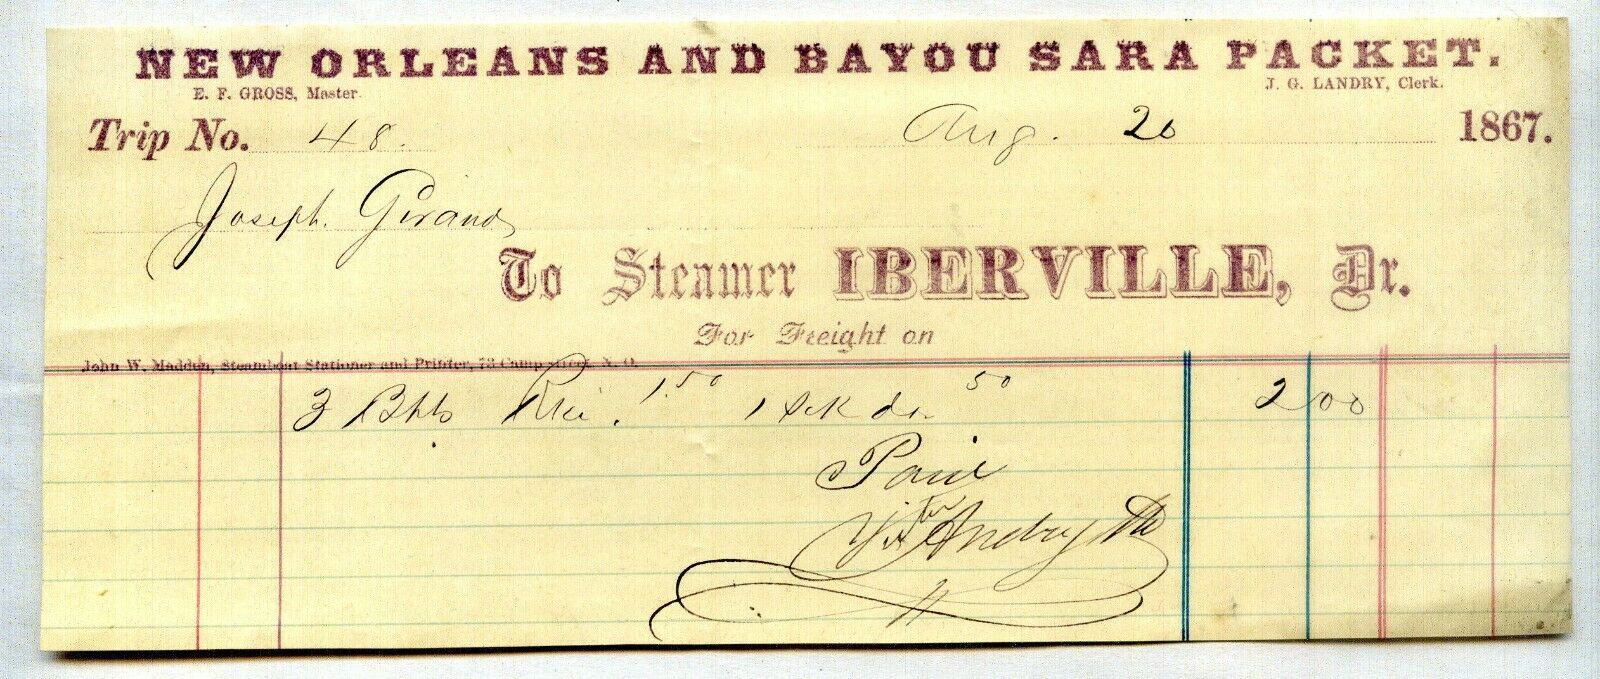 NEW ORLEANS AND BAYOU SARA PACKET.
E. F. GROSS, Master. J. G. LANDRY, Clerk.
Trip No. 48. Aug. 20 1867.
Joseph. Giraud
To Steamer IBERVILLE, Dr.
For Freight on
John W. Madden, Steamboat Stationer and Printer, 73 Camp street, N. O.
3 Bbls Rice. 1.50 1 sck do. 50 2 00
Paid